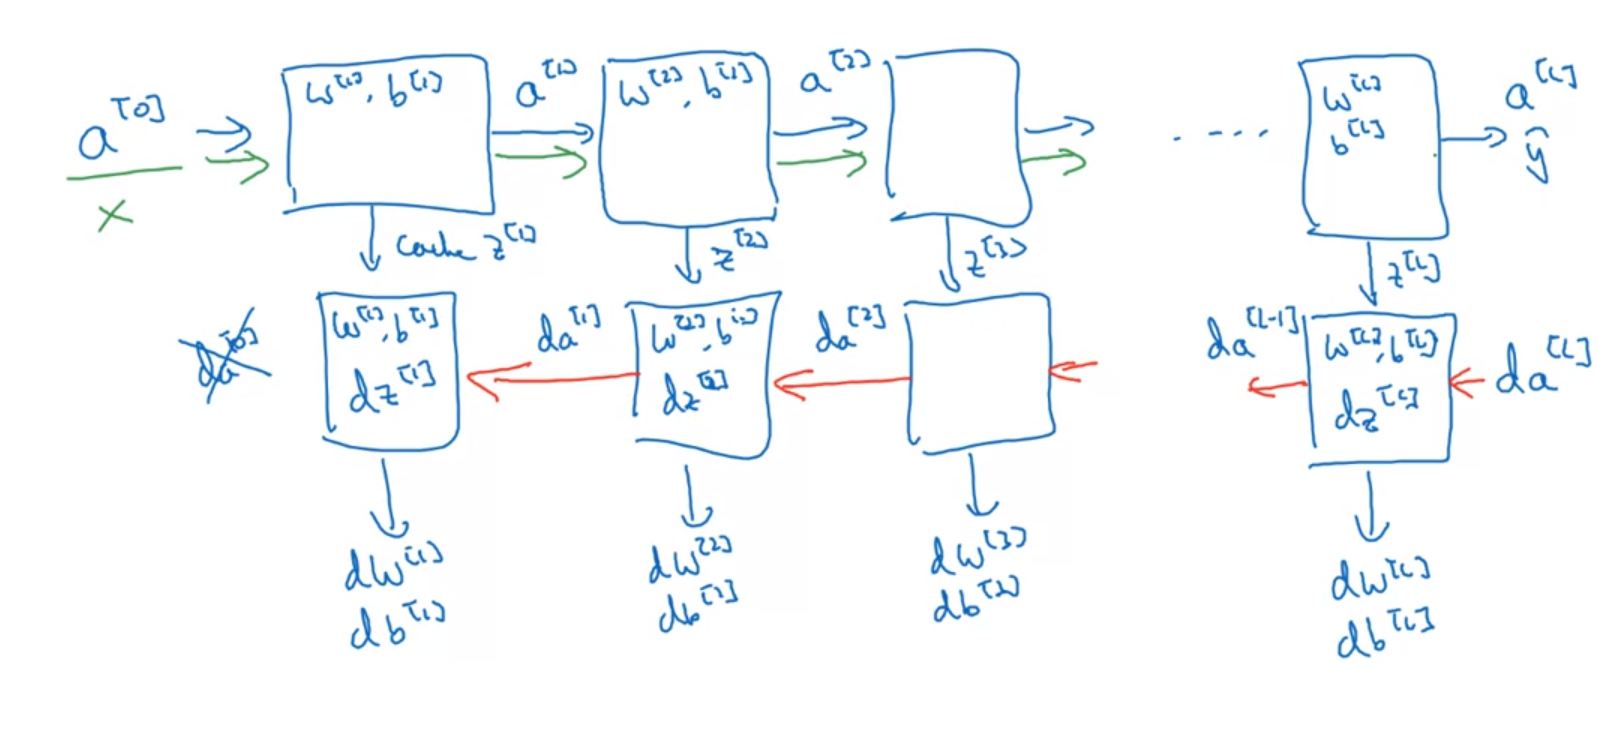 a^[0]
x
w^[1], b^[1]
a^[1]
w^[2], b^[2]
a^[2]
....
w^[L]
b^[L]
a^[L]
ŷ
cache z^[1]
z^[2]
z^[3]
z^[L]
da^[0]
w^[1], b^[1]
dz^[1]
da^[1]
w^[2], b^[2]
dz^[2]
da^[2]
da^[L-1]
w^[L], b^[L]
dz^[L]
da^[L]
dw^[1]
db^[1]
dw^[2]
db^[2]
dw^[3]
db^[3]
dw^[L]
db^[L]